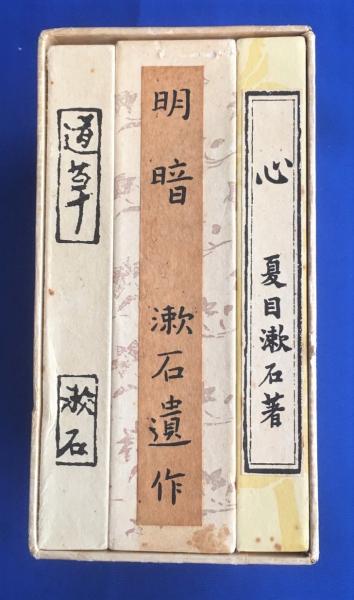 心
夏目漱石著
明暗
漱石遺作
道草
漱石